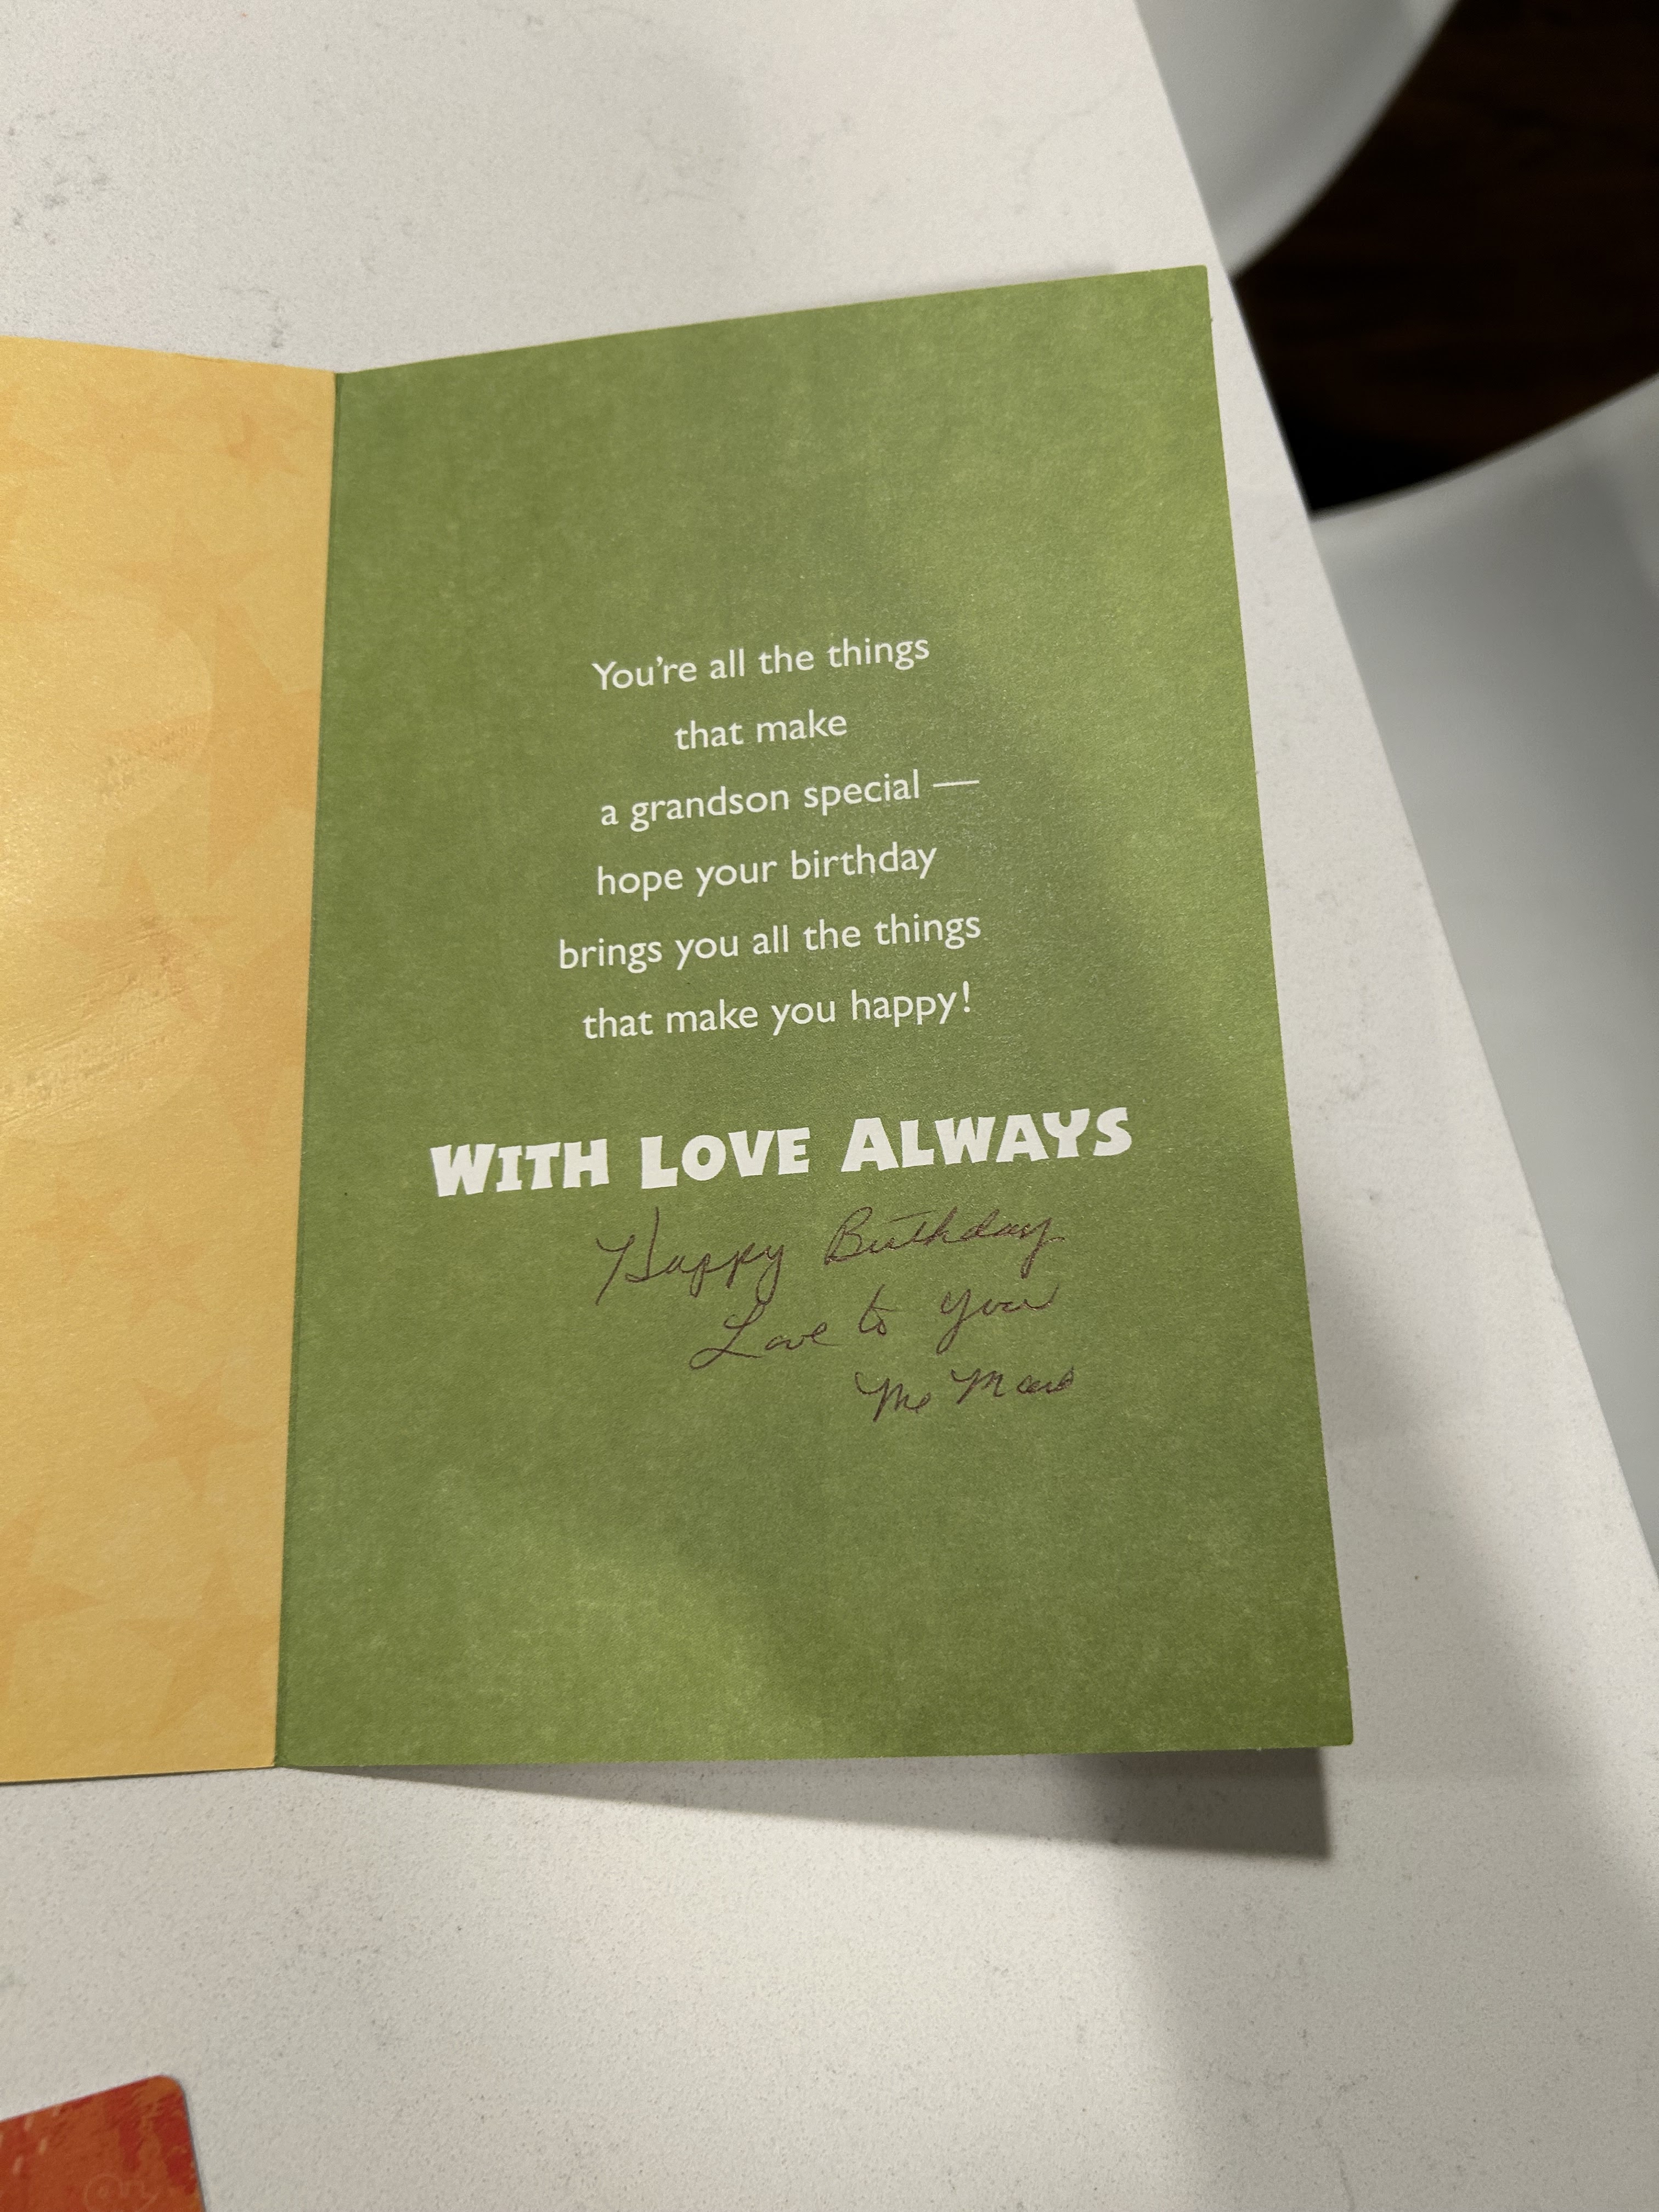 You're all the things
that make
a grandson special —
hope your birthday
brings you all the things
that make you happy!
WITH LOVE ALWAYS
Happy Birthday
Love to you
Me